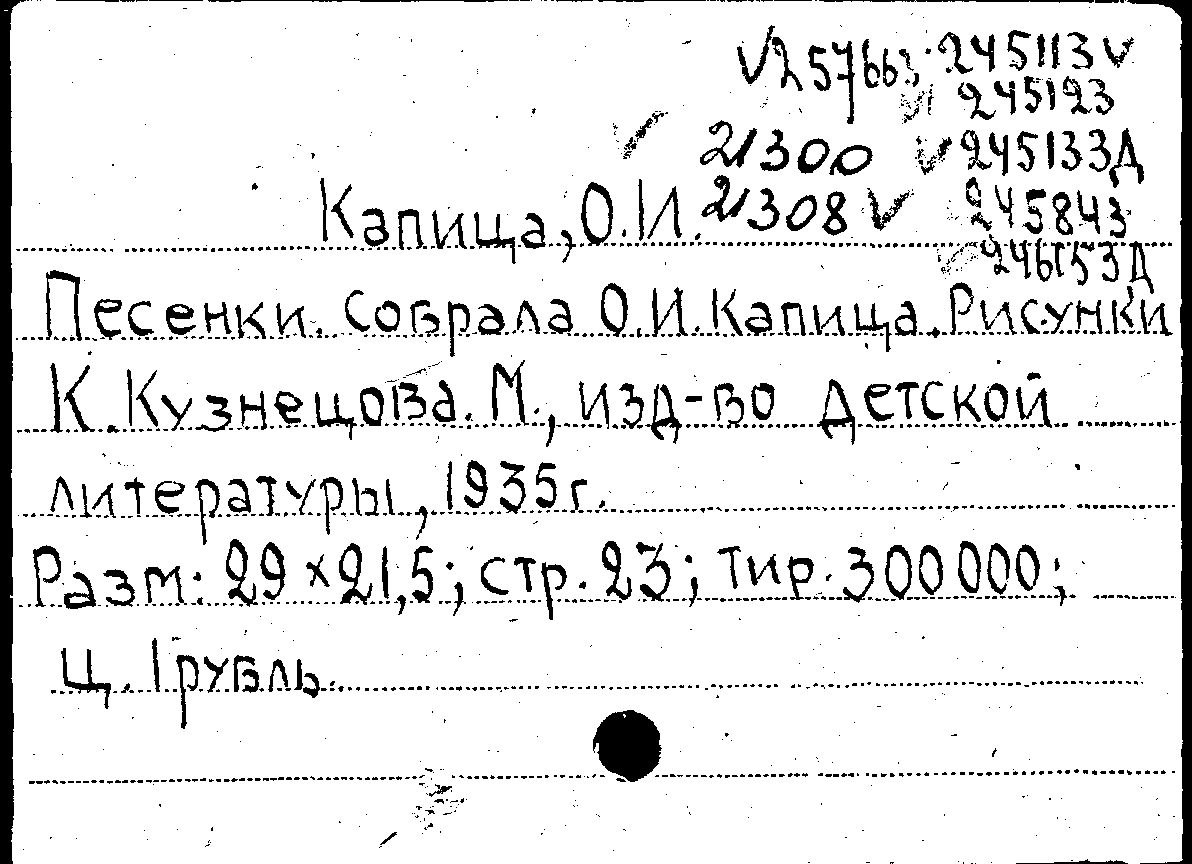 257663 245113
245123
21300 245133Д
Капица, О.И. 21308 245843
246153Д
Песенки. Собрала О.И. Капица. Рисунки
К. Кузнецова. М., изд-во детской
литературы, 1935г.
Разм: 29×21,5; стр. 23; тир. 300 000;
ц. 1 рубль.